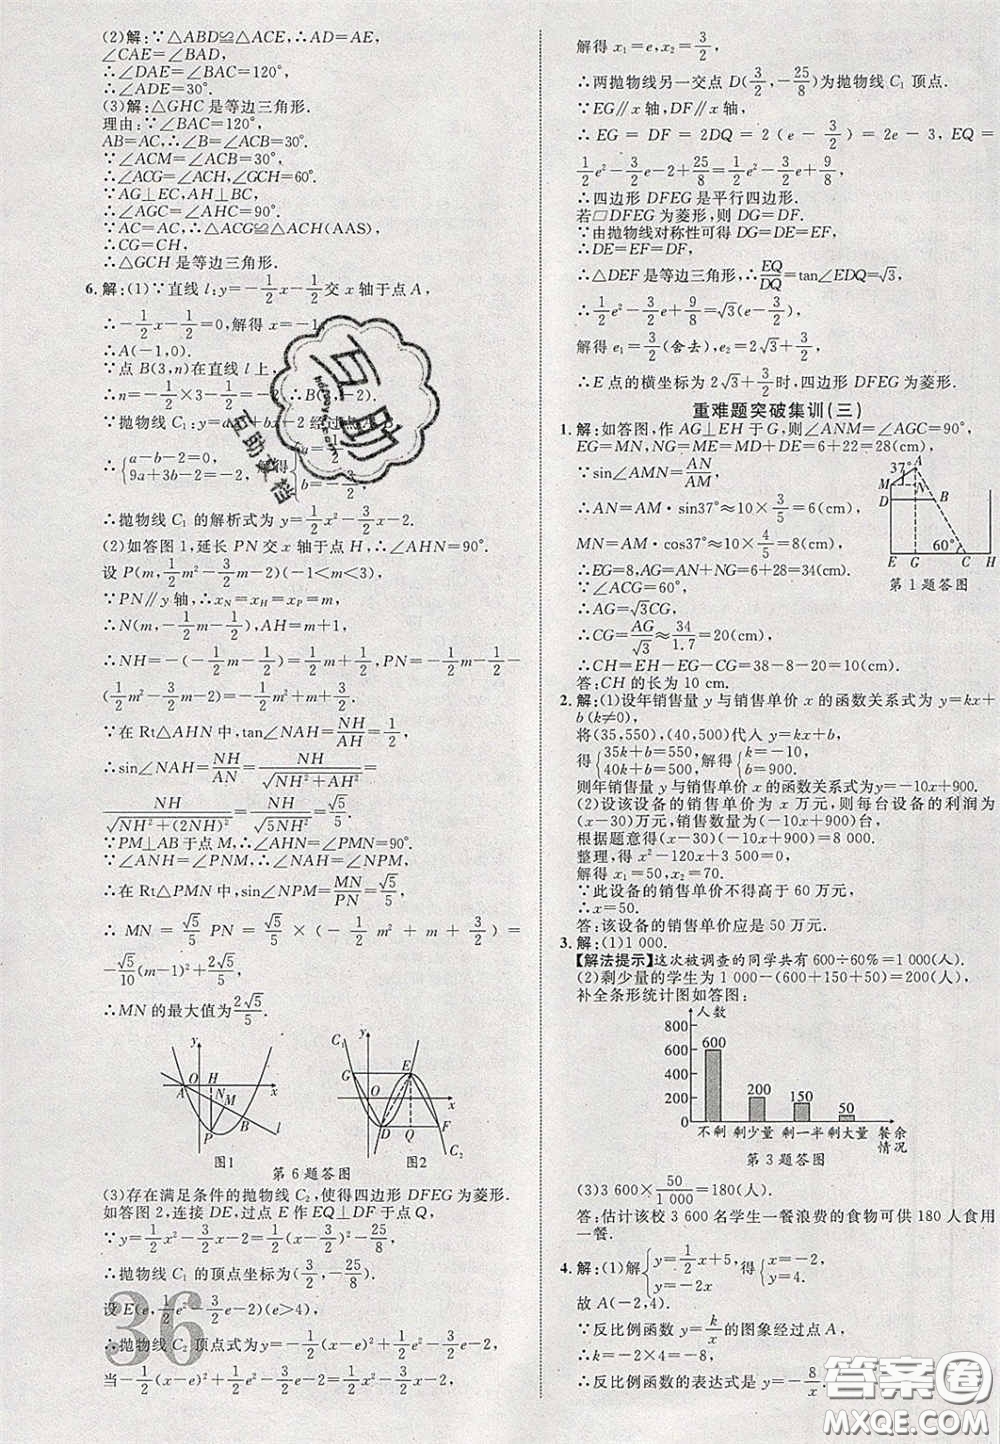 (2)解:∵△ABD≌△ACE,∴AD=AE,
∠CAE=∠BAD,
∴∠DAE=∠BAC=120°,
∴∠ADE=30°.
(3)解:△GHC是等边三角形.
理由:∵∠BAC=120°,
AB=AC,∴∠ACB=∠B=30°.
∵∠ACM=∠ACB=30°.
∴∠ACG=∠ACH,∠GCH=60°.
∵AG⊥EC,AH⊥BC,
∴∠AGC=∠AHC=90°.
∵AC=AC,∴△ACG≌△ACH(AAS),
∴CG=CH,
∴△GCH是等边三角形.
6.解:(1)∵直线l:y=-1/2x-1/2交x轴于点A,
∴-1/2x-1/2=0,解得x=-1,
∴A(-1,0).
∵点B(3,n)在直线l上,
∴n=-1/2×3-1/2=-2,∴B(3,-2).
∵抛物线C₁:y=ax²+bx-2经过点A,
∴{a-b-2=0, 9a+3b-2=-2, 得 b=-3/2,
∴抛物线C₁的解析式为y=1/2x²-3/2x-2.
(2)如答图1,延长PN交x轴于点H,∴∠AHN=90°.
设P(m,1/2m²-3/2m-2)(-1<m<3),
∵PN∥y轴,∴x_N=x_H=x_P=m,
∴N(m,-1/2m-1/2),AH=m+1,
∴NH=-(-1/2m-1/2)=1/2m+1/2,PN=-1/2m-1/2-
(1/2m²-3/2m-2)=-1/2m²+m+3/2.
∵在Rt△AHN中,tan∠NAH=NH/AH=1/2,
∴sin∠NAH=NH/AN=NH/√(NH²+AH²)=
NH/√(NH²+(2NH)²)=NH/√(5NH²)=√5/5.
∵PM⊥AB于点M,∴∠AHN=∠PMN=90°.
∵∠ANH=∠PNM,∴∠NAH=∠NPM,
∴在Rt△PMN中,sin∠NPM=MN/PN=√5/5,
∴MN=√5/5PN=√5/5(-1/2m²+m+3/2)=
-√5/10(m-1)²+2√5/5.
∴MN的最大值为2√5/5.
y
A O H x
N M
P B l
图1
C₁ y
G E
O x
D Q F
C₂
图2
第6题答图
(3)存在满足条件的抛物线C₂,使得四边形DFEG为菱形.
如答图2,连接DE,过点E作EQ⊥DF于点Q,
∵y=1/2x²-3/2x-2=1/2(x-3/2)²-25/8,
∴抛物线C₁的顶点坐标为(3/2,-25/8).
设E(e,1/2e²-3/2e-2)(e>4),
∴抛物线C₂顶点式为y=-1/2(x-e)²+1/2e²-3/2e-2,
当-1/2(x-e)²+1/2e²-3/2e-2=1/2x²-3/2x-2时,
36
解得x₁=e,x₂=3/2,
∴两抛物线另一交点D(3/2,-25/8)为抛物线C₁顶点.
∵EG∥x轴,DF∥x轴,
∴EG=DF=2DQ=2(e-3/2)=2e-3,EQ=
1/2e²-3/2e-2+25/8=1/2e²-3/2e+9/8,
∴四边形DFEG是平行四边形.
若□DFEG为菱形,则DG=DF.
∵由抛物线对称性可得DG=DE=EF,
∴DE=DF=EF,
∴△DEF是等边三角形,∴EQ/DQ=tan∠EDQ=√3,
∴1/2e²-3/2e+9/8=√3(e-3/2),
解得e₁=3/2(舍去),e₂=2√3+3/2,
∴E点的横坐标为2√3+3/2时,四边形DFEG为菱形.
重难题突破集训(三)
1.解:如答图,作AG⊥EH于G,则∠ANM=∠AGC=90°,
EG=MN,NG=ME=MD+DE=6+22=28(cm).
∵sin∠AMN=AN/AM,
∴AN=AM·sin37°≈10×3/5=6(cm),
MN=AM·cos37°≈10×4/5=8(cm),
∴EG=8,AG=AN+NG=6+28=34(cm).
∵∠ACG=60°,
∴AG=√3CG,
∴CG=AG/√3≈34/1.7=20(cm),
∴CH=EH-EG-CG=38-8-20=10(cm).
答:CH的长为10 cm.
37° A
M N
D B
60°
E G C H
第1题答图
2.解:(1)设年销售量y与销售单价x的函数关系式为y=kx+
b(k≠0),
将(35,550),(40,500)代入y=kx+b,
得{35k+b=550, 40k+b=500, 解得{k=-10, b=900.
则年销售量y与销售单价x的函数关系式为y=-10x+900.
(2)设该设备的销售单价为x万元,则每台设备的利润为
(x-30)万元,销售数量为(-10x+900)台,
根据题意得(x-30)(-10x+900)=8 000.
整理,得x²-120x+3 500=0,
解得x₁=50,x₂=70.
∵此设备的销售单价不得高于60万元,
∴x=50.
答:该设备的销售单价应是50万元.
3.解:(1)1 000.
【解法提示】这次被调查的同学共有600÷60%=1 000(人).
(2)剩少量的学生为1 000-(600+150+50)=200(人).
补全条形统计图如答图:
人数
800
600
400
200
0
600 200 150 50
不剩 剩少量 剩一半 剩大量 餐余情况
第3题答图
(3)3 600×50/1 000=180(人).
答:估计该校3 600名学生一餐浪费的食物可供180人食用
一餐.
4.解:(1)解{y=1/2x+5, y=-2x 得{x=-2, y=4.
故A(-2,4).
∵反比例函数y=k/x的图象经过点A,
∴k=-2×4=-8,
∴反比例函数的表达式是y=-8/x.
互助
互助文档
答案圈
MXQE.COM